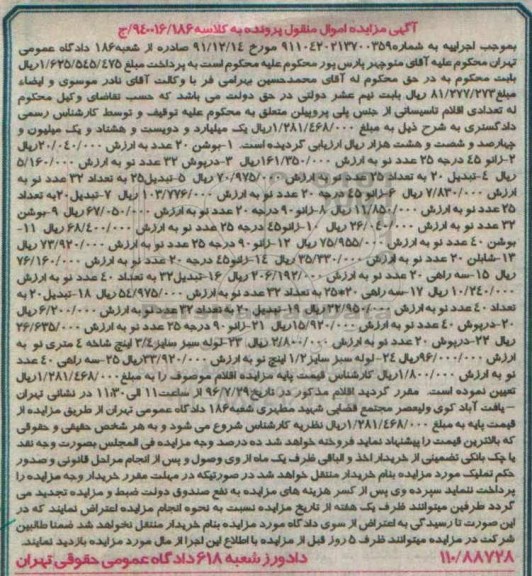 آگهی مزایده اموال منقول پرونده به کلاسه ۹۴۰۰۱۶/۱۸۶/ج
بموجب اجراییه به شماره ۹۱۱۰۴۲۰۲۱۳۷۰۰۳۵۹ مورخ ۹۱/۱۲/۱۴ صادره از شعبه ۱۸۶ دادگاه عمومی
تهران محکوم علیه آقای منوچهر پارس پور محکوم علیه محکوم است به پرداخت مبلغ ۱/۶۲۵/۵۴۵/۴۷۵ریال
بابت محکوم به در حق محکوم له آقای محمدحسین بهرامی فر با وکالت آقای نادر موسوی و ایضاء
مبلغ ۸۱/۲۷۷/۲۷۳ ریال بابت نیم عشر دولتی در حق دولت می باشد که حسب تقاضای وکیل محکوم
له تعدادی اقلام تاسیساتی از جنس پلی پروپیلن متعلق به محکوم علیه توقیف و توسط کارشناس رسمی
دادگستری به شرح ذیل به مبلغ ۱/۲۸۱/۴۶۸/۰۰۰ریال یک میلیارد و دویست و هشتاد و یک میلیون و
چهارصد و شصت و هشت هزار ریال ارزیابی گردیده است. ۱-بوشن ۲۰ عدد به ارزش ۲۰/۰۴۰/۰۰۰ریال
۲-زانو ۴۵ درجه ۲۵ عدد نو به ارزش ۱۶۱/۳۵۰/۰۰۰ریال ۳-درپوش ۳۲ عدد نو به ارزش ۵/۱۶۰/۰۰۰
ریال ۴-تبدیل ۲۰ به تعداد ۲۵ عدد نو به ارزش ۷۰/۹۷۵/۰۰۰ ریال ۵-تبدیل۲۵ به تعداد ۳۲ عدد نو به
ارزش ۷/۸۳۰/۰۰۰ ریال ۶-زانو ۴۵ درجه ۲۰ عدد نو به ارزش ۱۰۳/۷۷۶/۰۰۰ ریال ۷-تبدیل۲۰به تعداد
۲۵ عدد نو به ارزش ۱۱/۸۵۰/۰۰۰ ریال ۸-زانو ۹۰ درجه ۲۰ عدد نو به ارزش ۶۷/۰۵۰/۰۰۰ ریال ۹-بوشن
۳۲ عدد نو به ارزش ۲۶/۰۴۰/۰۰۰ ریال ۱۰-زانو۴۵ درجه ۲۵ عدد نو به ارزش ۶۸/۴۰۰/۰۰۰ ریال ۱۱-
بوشن ۴۰ عدد نو به ارزش ۷۵/۹۵۵/۰۰۰ ریال ۱۲-زانو ۹۰ درجه ۲۵ عدد نو به ارزش ۷۳/۹۲۰/۰۰۰ ریال
۱۳-شابلن ۲۰ عدد نو به ارزش ۳۵/۳۳۰/۰۰۰ریال ۱۴-زانو۴۵ درجه ۲۰ عدد نو به ارزش ۷۶/۱۶۰/۰۰۰
ریال ۱۵-سه راهی ۲۰ عدد نو به ارزش ۲۰۶/۱۹۲/۰۰۰ ریال ۱۶-تبدیل۳۲ به تعداد ۴۰ عدد نو به ارزش
۱۰/۲۴۰/۰۰۰ ریال ۱۷-سه راهی ۲۰*۲۵ به تعداد ۳۲ عدد نو به ارزش ۵۴/۹۷۵/۰۰۰ ریال ۱۸-تبدیل ۲۰ به
تعداد ۴۰ عدد نو به ارزش ۳۲/۹۵۰/۰۰۰ ریال ۱۹-تبدیل ۲۰ به تعداد ۳۲ عدد نو به ارزش ۶/۲۰۰/۰۰۰ ریال
۲۰-درپوش ۴۰ عدد نو به ارزش ۱۵/۹۲۰/۰۰۰ریال ۲۱-زانو ۹۰ درجه ۲۵ عدد نو به ارزش ۲۶/۶۳۵/۰۰۰
ریال ۲۲-درپوش ۲۰ عدد نو به ارزش ۲/۸۰۰/۰۰۰ ریال ۲۳-لوله سبز سایز۳/۴ اینچ شاخه ۴ متری نو به
ارزش ۹۶/۰۰۰/۰۰۰ریال ۲۴-لوله سبز سایز۱/۲ اینچ نو به ارزش ۳۳/۹۲۰/۰۰۰ریال ۲۵-سه راهی ۴۰ عدد
نو به ارزش ۱/۸۰۰/۰۰۰ریال کارشناس قیمت پایه مزایده اقلام موصوف را به مبلغ ۱/۲۸۱/۴۶۸/۰۰۰ریال
تعیین نموده است. مقرر گردید اقلام مذکور در تاریخ ۹۶/۷/۲۹ از ساعت ۱۱ الی ۱۱:۳۰ در نشانی تهران
– یافت آباد کوی ولیعصر مجتمع قضایی شهید مطهری شعبه ۱۸۶ دادگاه عمومی تهران از طریق مزایده از
قیمت پایه به مبلغ ۱/۲۸۱/۴۶۸/۰۰۰ریال نظریه کارشناس شروع می شود و به هر شخص حقیقی و حقوقی
که بالاترین قیمت را پیشنهاد نماید فروخته خواهد شد ده درصد وجه مزایده فی المجلس بصورت وجه نقد
یا چک بانکی تضمینی از خریدار اخذ و الباقی ظرف یک ماه از وی وصول و پس از انجام مراحل قانونی و صدور
حکم تملیک مورد مزایده بنام خریدار منتقل خواهد شد در صورتیکه در مهلت مقرر خریدار وجه مزایده را
پرداخت ننماید سپرده وی پس از کسر هزینه های مزایده به نفع صندوق دولت ضبط و مزایده تجدید می
گردد طرفین میتوانند ظرف یک هفته از تاریخ مزایده نسبت به نحوه انجام مزایده اعتراض نمایند که در
این صورت تا رسیدگی به اعتراض از سوی دادگاه مورد مزایده بنام خریدار منتقل نخواهد شد ضمنا طالبین
شرکت در مزایده میتوانند ظرف ۵ روز قبل از مزایده با اطلاع این اجرا از مال مورد مزایده بازدید نمایند.
۱۱۰/۸۸۷۲۸ دادورز شعبه ۶۱۸ دادگاه عمومی حقوقی تهران